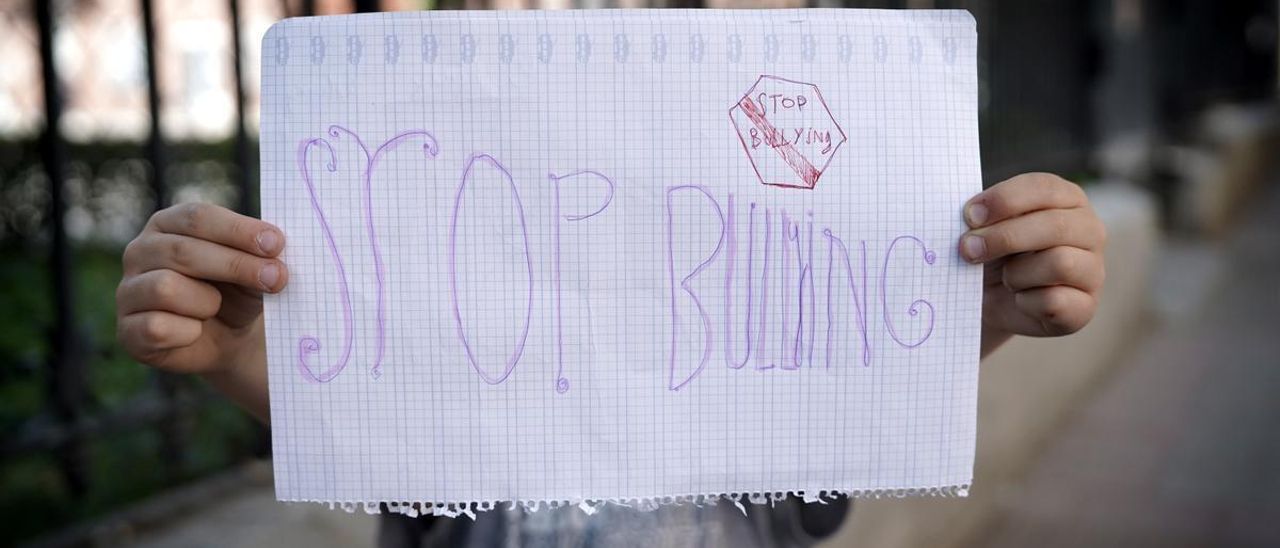 STOP
BULLYing
STOP BULLYiNG